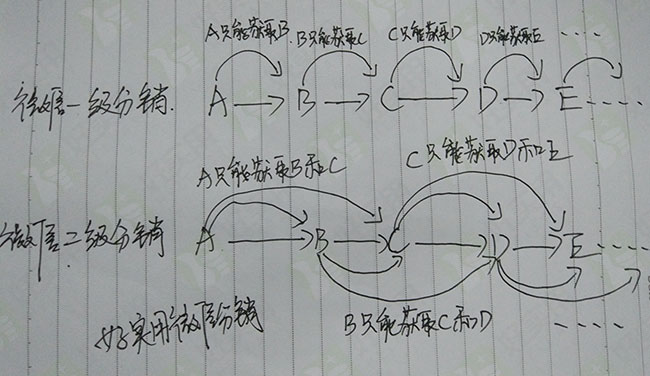 A只能获取B B只能获取C C只能获取D D只能获取E ....
微信一级分销. A B C D E .....
A只能获取B和C C只能获取D和E
微信二级分销 A B C D E .....
好实用微信分销 B只能获取C和D ....